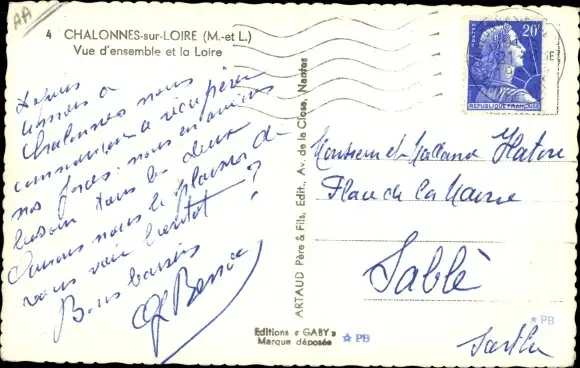 AA
4 CHALONNES-sur-LOIRE (M.-et-L.)
Vue d'ensemble et la Loire
à
Chalonnes nous
commençons à récupérer
nos forces. nous en avions
besoin tous les deux
Aurons nous le plaisir de
vous voir bientôt ?
Bons baisers
ARTAUD Père & Fils, Edit., Av. de la Close, Nantes
Editions « GABY »
Marque déposée
PB
POSTES
20F
REPUBLIQUE FRANÇAISE
Monsieur et Madame
Place de la Mairie
Sablé
PB
Sarthe